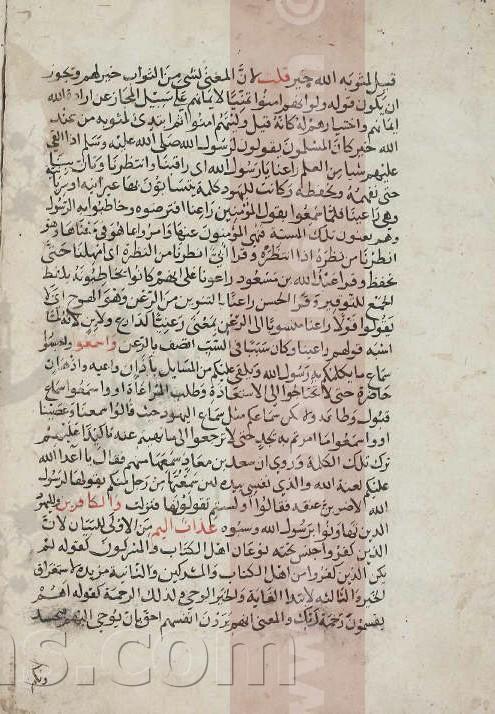 قيل لمثوبة الله خير قلت لان المعنى لشئ من الثواب خير لهم ويجوز
ان يكون قوله ولو انهم امنوا تمنيا لايمانهم على سبيل المجاز عن ارادة الله
ايمانهم واختيارهم له كانه قيل وليتهم امنوا ثم ابتدئ لمثوبة من عند
الله خير كان المسلمون يقولون لرسول الله صلى الله عليه وسلم اذا القى
عليهم شيا من العلم راعنا يارسول الله اى راقبنا وانتظرنا وتان بنا
حتى نفهمه ونحفظه وكانت لليهود كلمة يتسابون بها عبرانية او سريانية
وهى راعينا فلما سمعوا بقول المؤمنين راعنا افترصوه وخاطبوا به الرسول
وهم يعنون تلك المسبة فنهى المؤمنون عنها وامروا بما هو فى معناها وهو
انظرنا من نظره اذا انتظره وقرا ابى انظرنا من النظرة اى امهلنا حتى
نحفظ وقرا عبد الله بن مسعود راعونا على انهم كانوا يخاطبونه بلفظ
الجمع للتوقير وقرا الحسن راعنا بالتنوين من الرعن وهو الهوج اى لا
تقولوا قولا راعنا منسوبا الى الرعن بمعنى رعنيا كدارع ولابن لانه لما
اشبه قولهم راعينا وكان سببا فى السب اتصف بالرعن واسمعوا واحسنوا
سماع ما يكلمكم به رسول الله ويلقى عليكم من المسايل باذان واعيه واذهان
حاضرة حتى لا تحتاجوا الى الاستعادة وطلب المراعاة او واسمعوا سماع
قبول وطاعة ولا يكن سماعكم مثل سماع اليهود حيث قالوا سمعنا وعصينا
او واسمعوا ما امرتم به بجد حتى لا ترجعوا الى ما نهيتم عنه تاكيدا عليهم
ترك تلك الكلمة وروى ان سعد بن معاذ سمعها منهم فقال يا اعدا الله
عليكم لعنة الله والذى نفسى بيده لين سمعتها من رجل منكم يقولها لرسول
الله لاضربن عنقه فقالوا اولستم تقولونها فنزلت وللكافرين ولليهود
الذين تهاونوا برسول الله وسبوه عذاب اليم من الاولى للبيان لان
الذين كفروا جنس تحته نوعان اهل الكتاب والمشركون كقوله لم
يكن الذين كفروا من اهل الكتاب والمشركين والثانية مزيدة لاستغراق
الخير والثالثه لابتدا الغاية والخير الوحى وكذلك الرحمة كقوله اهم
يقسمون رحمة ربك والمعنى انهم يرون انفسهم احق بان يوحى اليهم
www.
ns.com